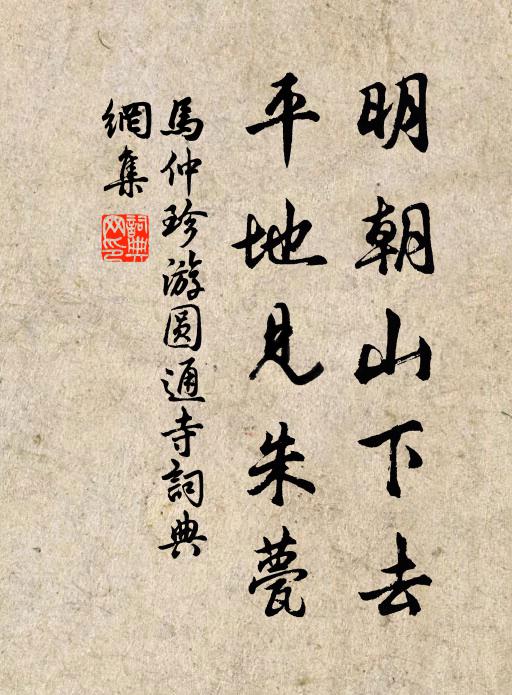 明朝山下去
平地見朱甍
馬仲珍游圆通寺詞典
網集
詞典网印